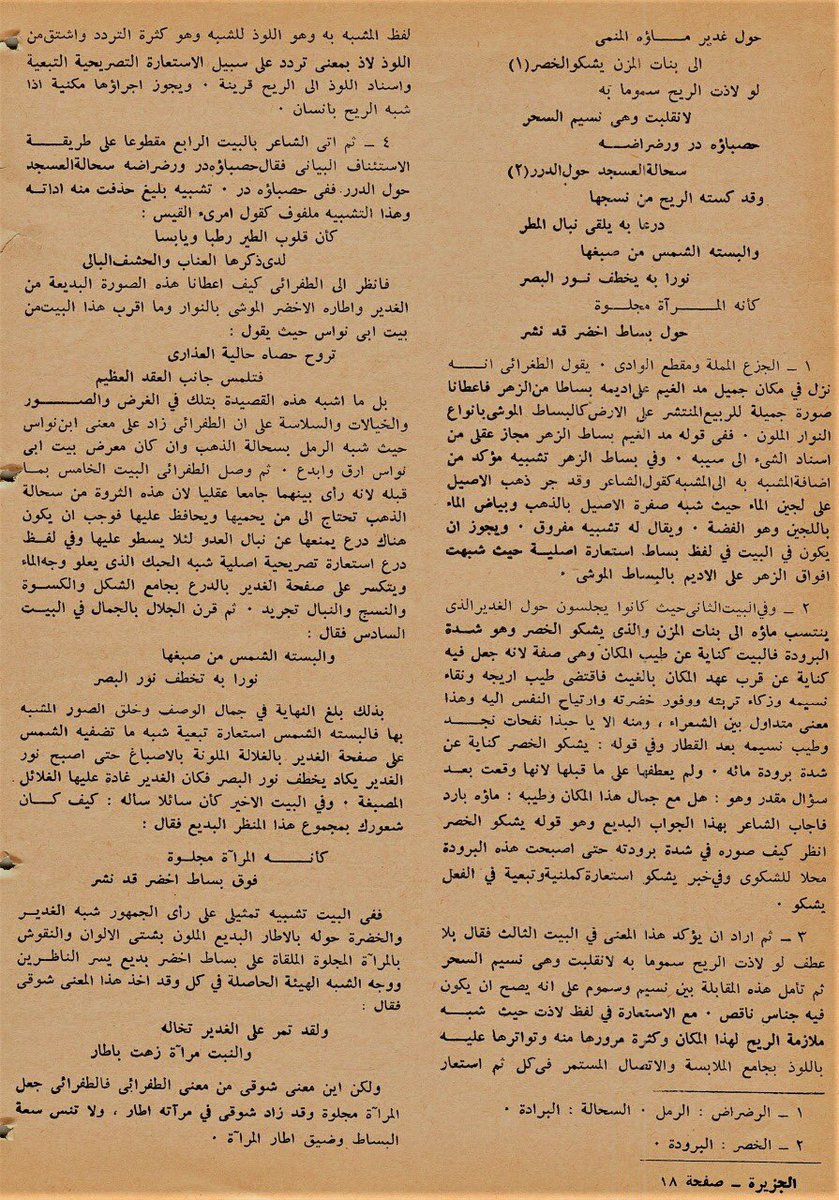 حول غدير مـــاؤه المنمى
الى بنات المزن يشكوالخصر(١)
لو لاذت الريح سموما به
لانقلبت وهى نسيم السحر
حصباؤه در ورضراضـــه
سحالةالعسجد حول الدرر(٢)
وقد كسته الريح من نسجها
درعا به يلقى نبال المطر
والبسته الشمس من صبغها
نورا به يخطف نـور البصر
كأنه المـــرآة مجلـوة
حول بساط اخضر قد نشر
١ ـ الجزع المملة ومقطع الوادى ٠ يقول الطغرائى انـــه
نزل في مكان جميل مد الغيم على اديمه بساطا من الزهر فاعطانا
صورة جميلة للربيع المنتشر على الارض كالبساط الموشى بانواع
النوار الملون ٠ ففى قوله مد الغيم بساط الزهر مجاز عقلى من
اسناد الشىء الى سببه ٠ وفي بساط الزهر تشبيه مؤكد من
اضافة المشبه به الى المشبه كقول الشاعر وقد جر ذهب الاصيل
على لجين الماء حيث شبه صفرة الاصيل بالذهب وبياض الماء
باللجين وهو الفضة ٠ ويقال له تشبيه مفروق ٠ ويجوز ان
يكون في البيت في لفظ بساط استعارة اصليـة حيث شبهت
افواق الزهر على الاديم بالبساط الموشى ٠
٢ ـ وفي البيت الثانى حيث كانوا يجلسون حول الغدير الذى
ينتسب ماؤه الى بنات المزن والذى يشكو الخصر وهو شـدة
البرودة فالبيت كناية عن طيب المكان وهى صفة لانه جعل فيه
كناية عن قرب عهد المكان بالغيث فاقتضى طيب اريجه ونقاء
نسيمه وزكاء تربته ووفور خضرته وارتياح النفس اليه وهذا
معنى متداول بين الشعراء ، ومنه الا يا حبذا نفحات نجـــد
وطيب نسيمه بعد القطار وفي قوله : يشكو الخصر كناية عن
شدة برودة مائه ٠ ولم يعطفها على ما قبلها لانها وقعت بعـد
سؤال مقدر وهو : هل مع جمال هذا المكان وطيبه : ماؤه بارد
فاجاب الشاعر بهذا الجواب البديع وهو قوله يشكو الخصر
انظر كيف صوره في شدة برودته حتى اصبحت هذه البرودة
محلا للشكوى وفي خبر يشكو استعارة كملنية وتبعية في الفعل
يشكو ٠
٣ ـ ثم اراد ان يؤكد هذا المعنى في البيت الثالث فقال بلا
عطف لو لاذت الريح سموما به لانقلبت وهى نسيم السحر
ثم تأمل هذه المقابلة بين نسيم وسموم على انه يصح ان يكون
فيه جناس ناقص ٠ مع الاستعارة في لفظ لاذت حيث شبـــه
ملازمة الريح لهذا المكان وكثرة مرورها منه وتواترها عليـــه
باللوذ بجامع الملابسة والاتصال المستمر فى كل ثم استعار
١ ـ الرضراض : الرمل ٠ السحالة : البرادة ٠
٢ ـ الخصر : البرودة ٠
الجزيرة ـ صفحة ١٨
لفظ المشبه به وهو اللوذ للشبه وهو كثرة التردد واشتق من
اللوذ لاذ بمعنى تردد على سبيل الاستعارة التصريحية التبعية
واسناد اللوذ الى الريح قرينة ٠ ويجوز اجراؤها مكنية اذا
شبه الريح بانسان ٠
٤ ـ ثم اتى الشاعر بالبيت الرابع مقطوعا على طريقـــة
الاستئناف البيانى فقال حصباؤه در ورضراضه سحالة العسجد
حول الدرر ففى حصباؤه در ٠ تشبيه بليغ حذفت منه اداتـه
وهذا التشبيه ملفوف كقول امرىء القيس :
كأن قلوب الطير رطبا ويابسا
لدى ذكرها العناب والحشف البالى
فانظر الى الطغرائى كيف اعطانا هذه الصورة البديعة من
الغدير واطاره الاخضر الموشى بالنوار وما اقرب هذا البيت من
بيت ابى نواس حيث يقول :
تروح حصاه حالية العذارى
فتلمس جانب العقد العظيم
بل ما اشبه هذه القصيدة بتلك في الغرض والصـــور
والخيالات والسلاسة على ان الطغرائى زاد على معنى ابن نواس
حيث شبه الرمل بسحالة الذهب وان كان معرض بيت ابى
نواس ارق وابدع ٠ ثم وصل الطغرائى البيت الخامس بمـا
قبله لانه رأى بينهما جامعا عقليا لان هذه الثروة من سحالة
الذهب تحتاج الى من يحميها ويحافظ عليها فوجب ان يكون
هناك درع يمنعها عن نبال العدو لئلا يسطو عليها وفي لفـظ
درع استعارة تصريحية اصلية شبه الحبك الذى يعلو وجه الماء
ويتكسر على صفحة الغدير بالدرع بجامع الشكل والكسـوة
والنسج والنبال تجريد ٠ ثم قرن الجلال بالجمال في البيـت
السادس فقال :
والبسته الشمس من صبغها
نورا به تخطف نور البصر
بذلك بلغ النهاية في جمال الوصف وخلق الصور المشبه
بها فالبسته الشمس استعارة تبعية شبه ما تضفيه الشمس
على صفحة الغدير بالغلالة الملونة بالاصباغ حتى اصبح نور
الغدير يكاد يخطف نور البصر فكان الغدير غادة عليها الغلائل
المصبغة ٠ وفي البيت الاخير كأن سائلا سأله : كيف كــان
شعورك بمجموع هذا المنظر البديع فقال :
كانـــه المرآة مجلـوة
فوق بساط اخضر قد نشر
ففى البيت تشبيه تمثيلى على رأى الجمهور شبه الغديـر
والخضرة حوله بالاطار البديع الملون بشتى الالوان والنقوش
بالمرآة المجلوة الملقاة على بساط اخضر بديع يسر الناظـرين
ووجه الشبه الهيئة الحاصلة في كل وقد اخذ هذا المعنى شوقى
فقال :
ولقد تمر على الغدير تخاله
والنبت مرآة زهت باطار
ولكن اين معنى شوقى من معنى الطغرائى فالطغرائى جعل
المرآة مجلوة وقد زاد شوقى في مرآته اطار ، ولا تنس سعة
البساط وضيق اطار المرآة ٠